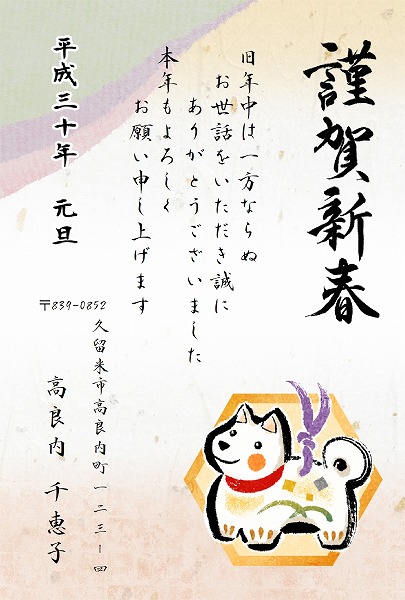 謹賀新春
旧年中は一方ならぬ
お世話をいただき誠に
ありがとうございました
本年もよろしく
お願い申し上げます
平成三十年 元旦
〒839-0852
久留米市高良内町一二三-四
高良内 千恵子